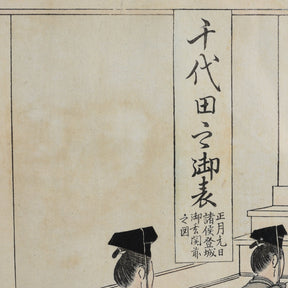 千代田之御表
正月元日
諸侯登城
御玄関前
之図